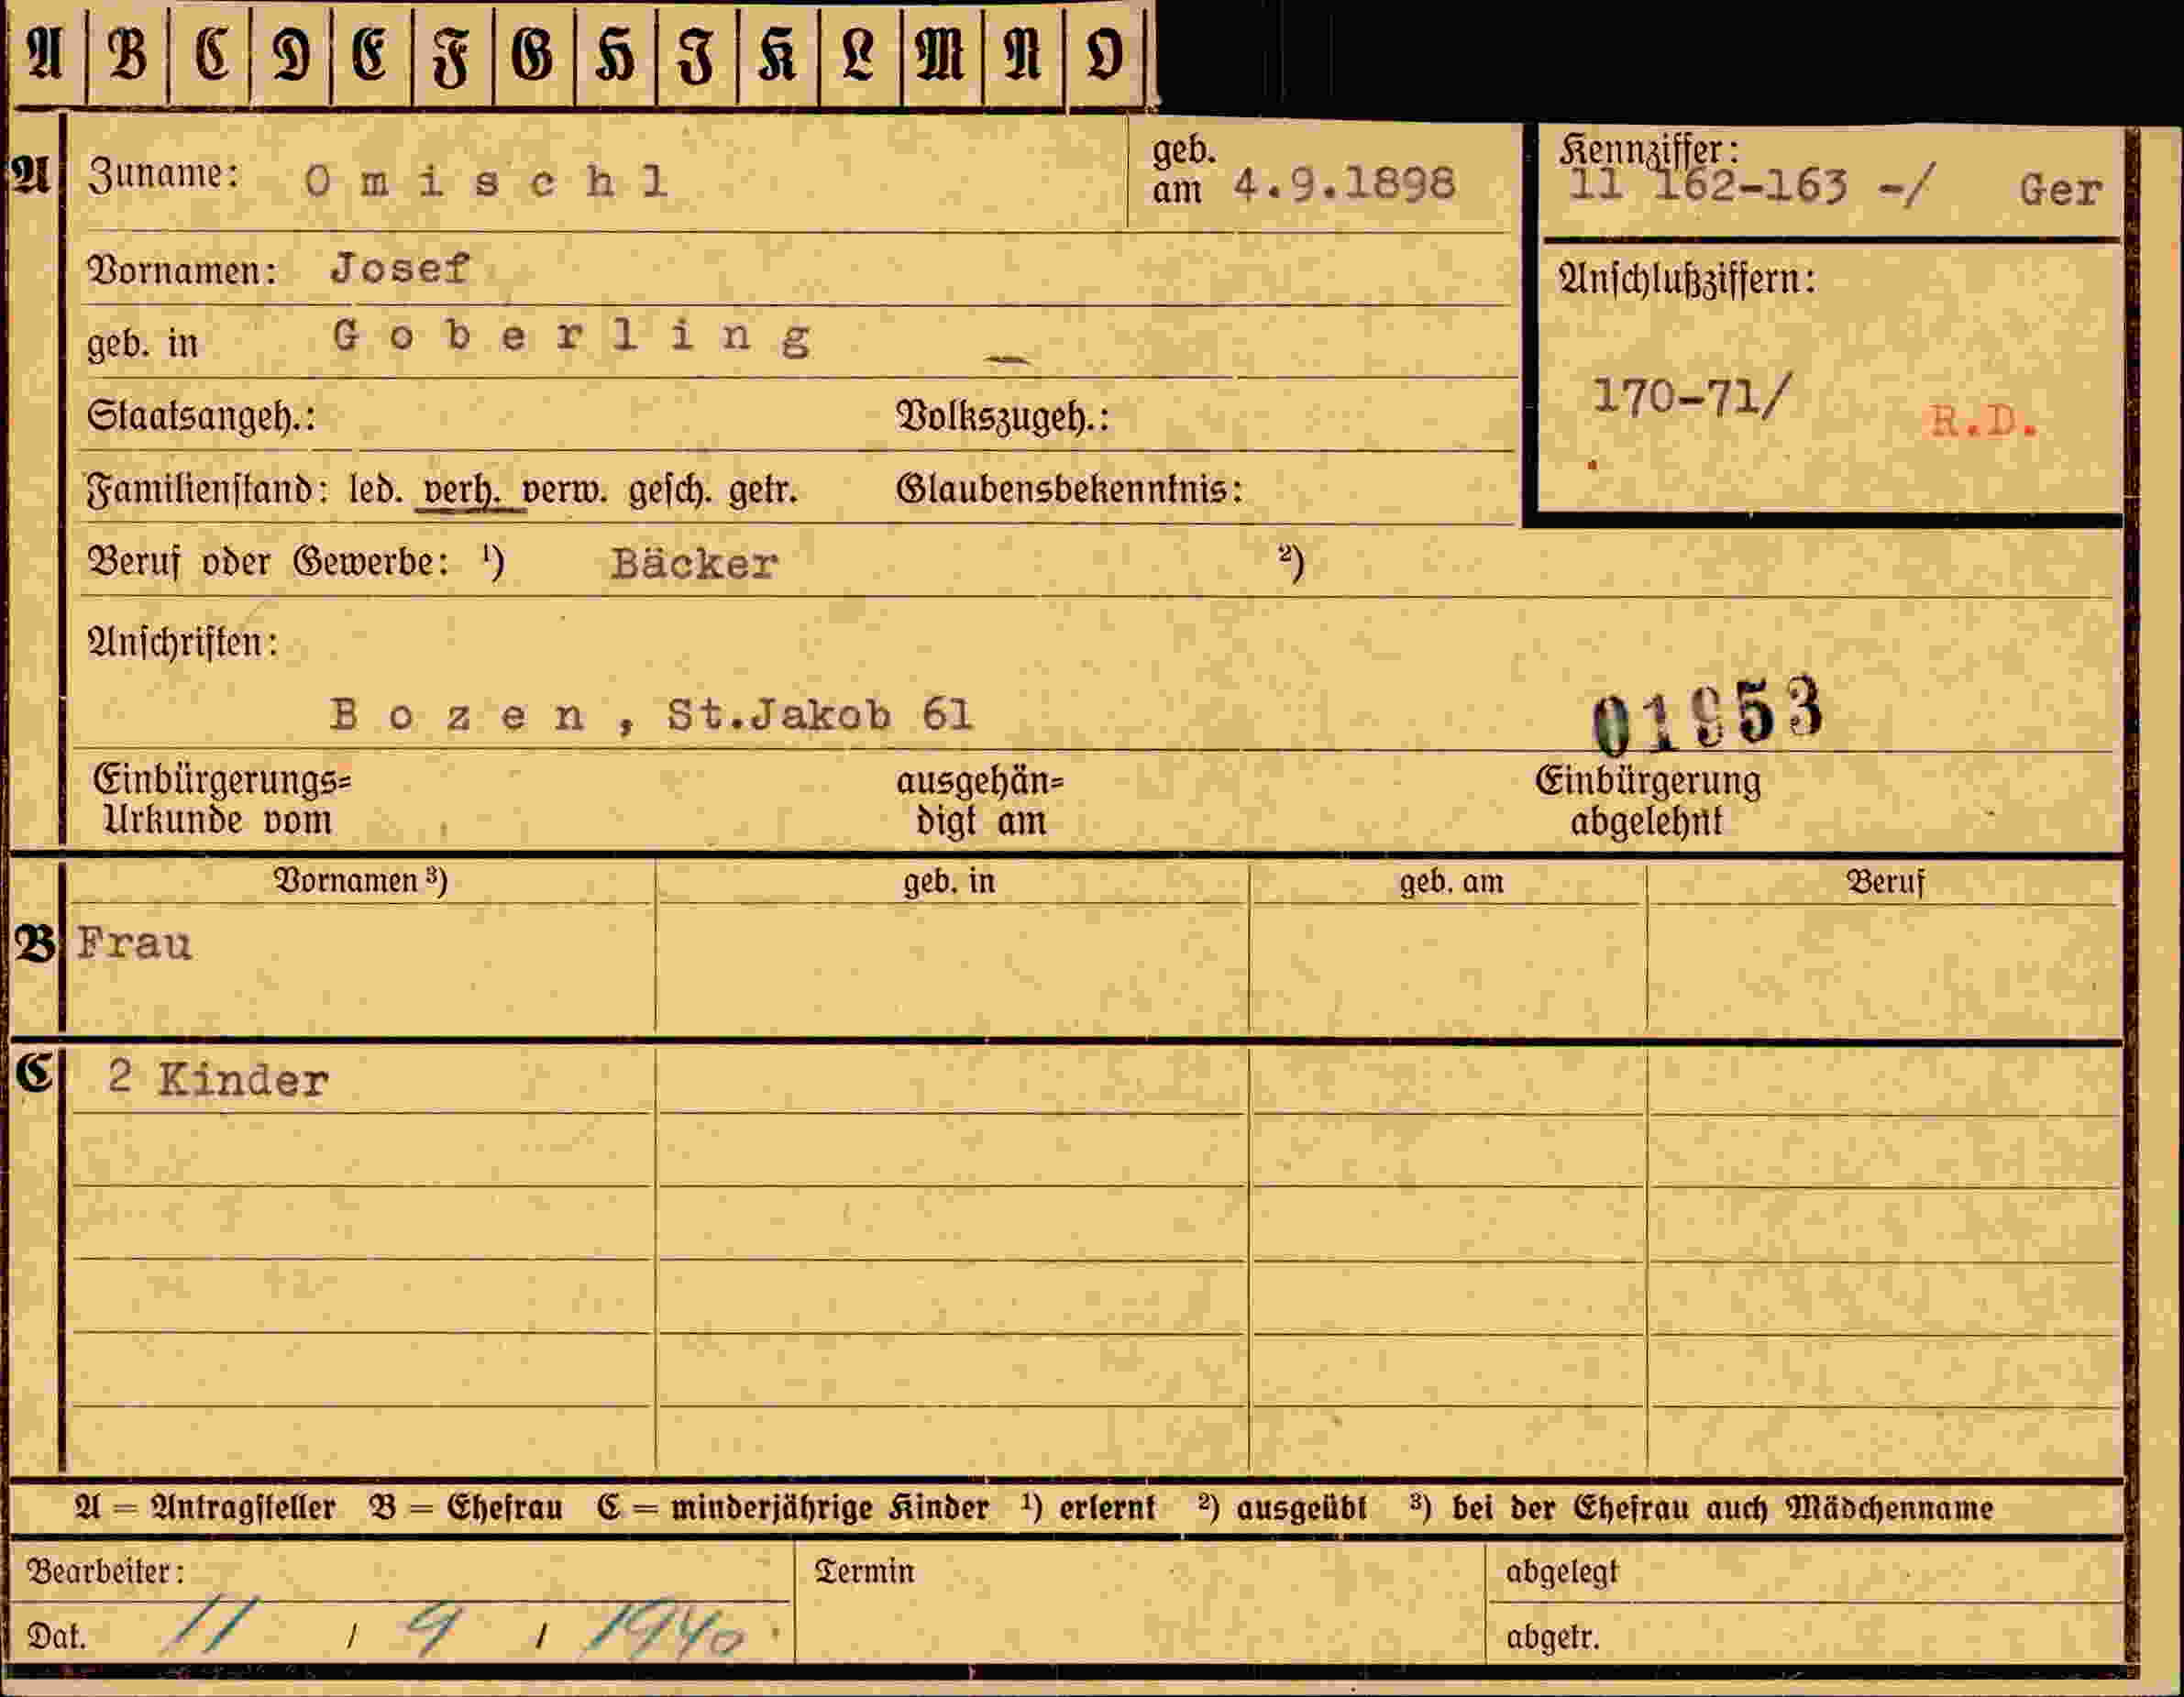 A B C D E F G H J K L M N O
A Zuname: Omischl geb. am 4.9.1898
Kennziffer: 11 162-163 -/ Ger
Vornamen: Josef
Anschlußziffern:
geb. in Goberling
170-71/ R.D.
Staatsangeh.: Volkszugeh.:
Familienstand: led. verh. verw. gesch. getr. Glaubensbekenntnis:
Beruf oder Gewerbe: ¹) Bäcker ²)
Anschriften:
Bozen, St.Jakob 61 01953
Einbürgerungs=
Urkunde vom
ausgehän=
digt am
Einbürgerung
abgelehnt
Vornamen ³) geb. in geb. am Beruf
B Frau
C 2 Kinder
A = Antragsteller B = Ehefrau C = minderjährige Kinder ¹) erlernt ²) ausgeübt ³) bei der Ehefrau auch Mädchenname
Bearbeiter: Termin abgelegt
Dat. 11 / 9 / 1940 abgetr.